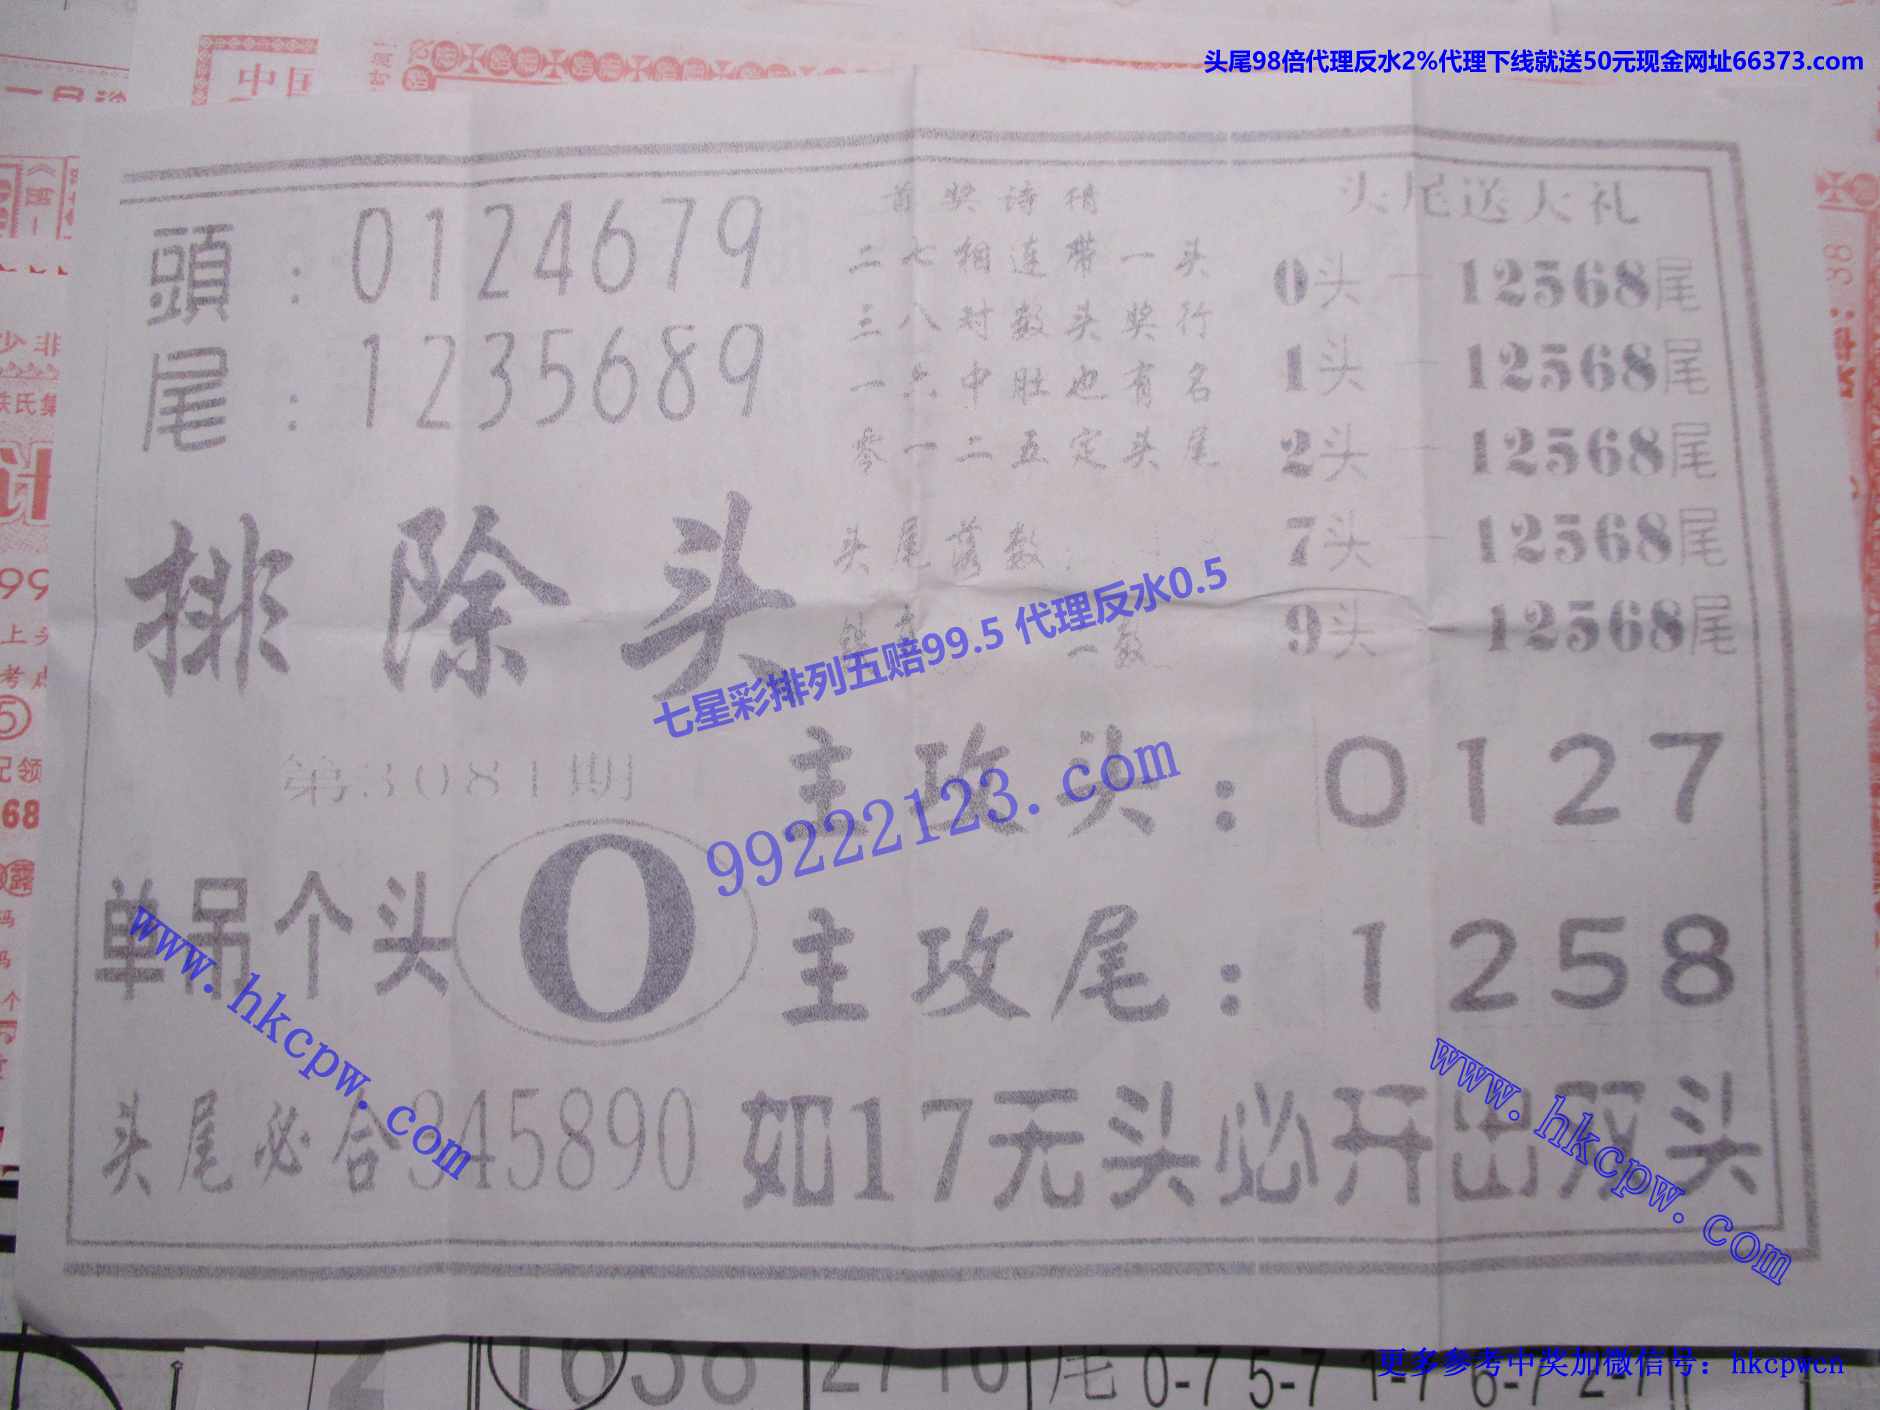 头尾98倍代理反水2%代理下线就送50元现金网址66373.com
中国
頭：0124679
尾：1235689
首奖诗精
二七相连带一头
三八对数头奖行
一六中肚也有名
零一二五定头尾
头尾落数：
一数
头尾送大礼
0头一12568尾
1头一12568尾
2头一12568尾
7头一12568尾
9头一12568尾
排除头
七星彩排列五赔99.5 代理反水0.5
99222123.com
第3081期
单吊个头 0
主攻头：0127
主攻尾：1258
www.hkcpw.com
www.hkcpw.com
头尾必合345890
如17无头必开出双头
1638
2710
尾 0-7 5-7 1-7 6-7
更多参考中奖加微信号：hkcpwcn